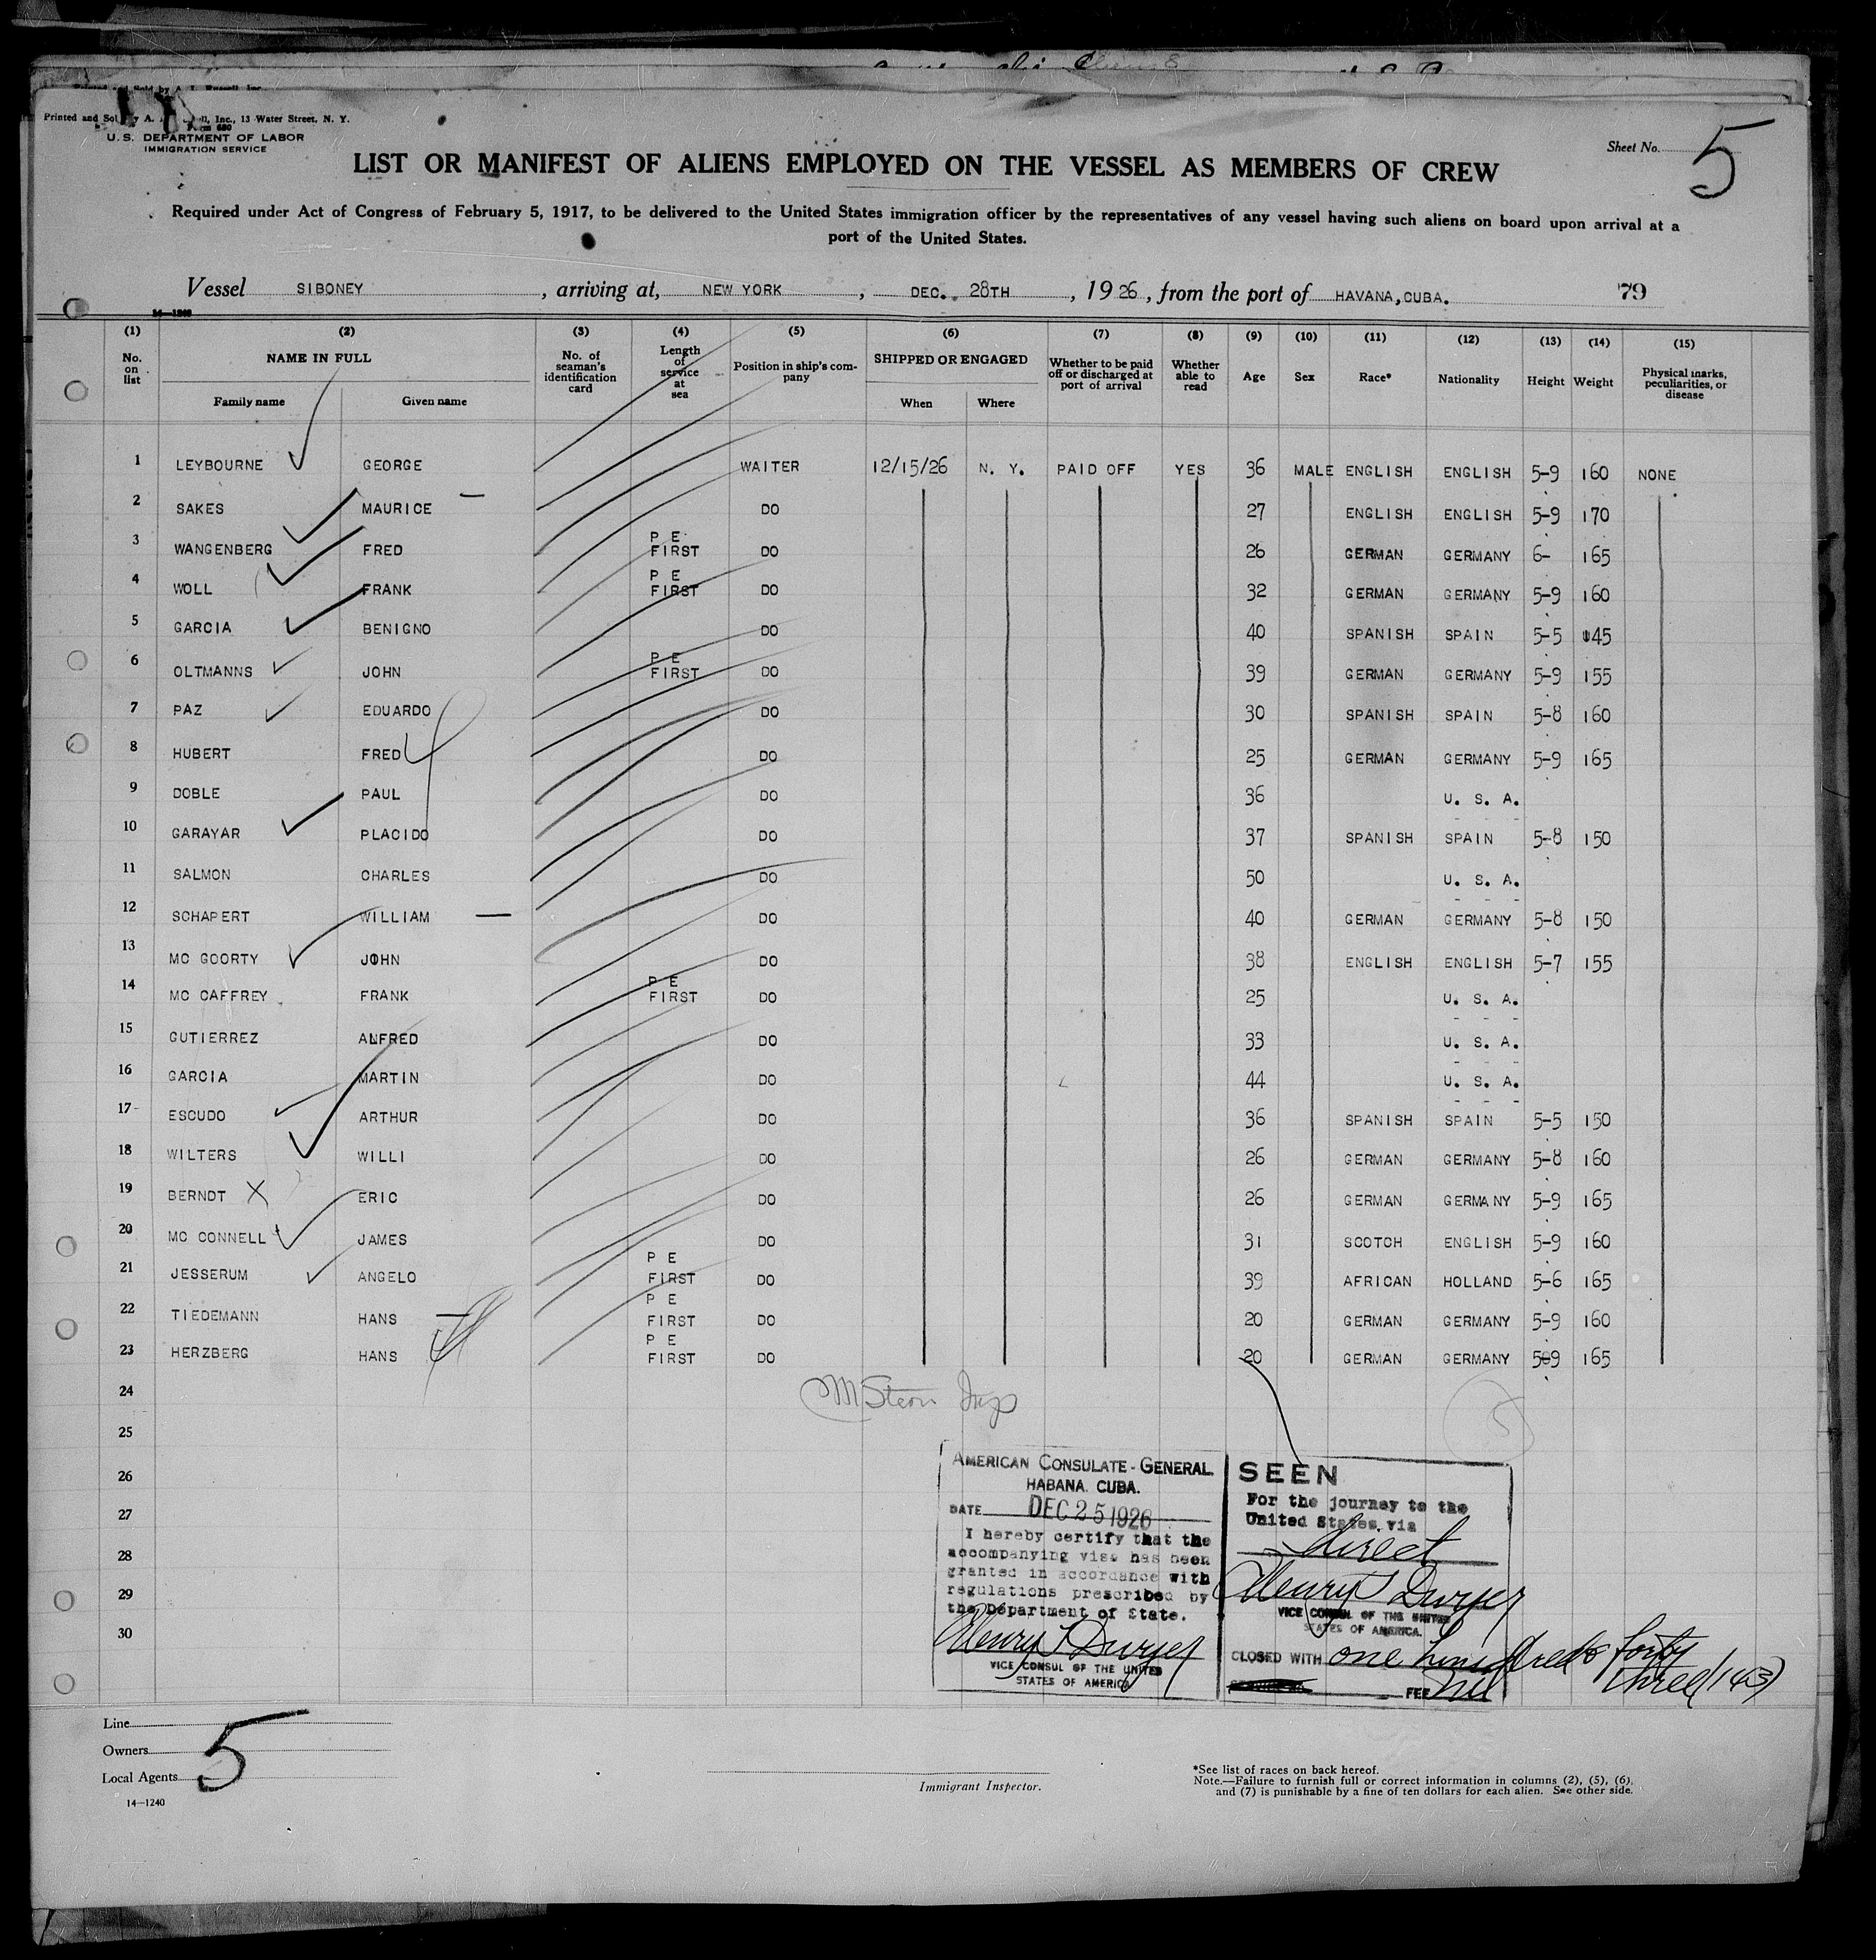 Printed and Sold by A. Inc., 13 Water Street, N. Y.
Form 680
U.S. DEPARTMENT OF LABOR
IMMIGRATION SERVICE
Sheet No. 5
LIST OR MANIFEST OF ALIENS EMPLOYED ON THE VESSEL AS MEMBERS OF CREW
Required under Act of Congress of February 5, 1917, to be delivered to the United States immigration officer by the representatives of any vessel having such aliens on board upon arrival at a
port of the United States.
Vessel SIBONEY, arriving at, NEW YORK, DEC. 28TH, 1926, from the port of HAVANA, CUBA. 79
14-1240
(1) (2) (3) (4) (5) (6) (7) (8) (9) (10) (11) (12) (13) (14) (15)
No. on list NAME IN FULL Family name Given name No. of seaman's identification card Length of service at sea Position in ship's company SHIPPED OR ENGAGED When Where Whether to be paid off or discharged at port of arrival Whether able to read Age Sex Race* Nationality Height Weight Physical marks, peculiarities, or disease
1 LEYBOURNE GEORGE WAITER 12/15/26 N. Y. PAID OFF YES 36 MALE ENGLISH ENGLISH 5-9 160 NONE
2 SAKES MAURICE DO 27 ENGLISH ENGLISH 5-9 170
3 WANGENBERG FRED P E FIRST DO 26 GERMAN GERMANY 6- 165
4 WOLL FRANK P E FIRST DO 32 GERMAN GERMANY 5-9 160
5 GARCIA BENIGNO DO 40 SPANISH SPAIN 5-5 145
6 OLTMANNS JOHN P E FIRST DO 39 GERMAN GERMANY 5-9 155
7 PAZ EDUARDO DO 30 SPANISH SPAIN 5-8 160
8 HUBERT FRED DO 25 GERMAN GERMANY 5-9 165
9 DOBLE PAUL DO 36 U. S. A.
10 GARAYAR PLACIDO DO 37 SPANISH SPAIN 5-8 150
11 SALMON CHARLES DO 50 U. S. A.
12 SCHAPERT WILLIAM DO 40 GERMAN GERMANY 5-8 150
13 MC GOORTY JOHN DO 38 ENGLISH ENGLISH 5-7 155
14 MC CAFFREY FRANK P E FIRST DO 25 U. S. A.
15 GUTIERREZ ALFRED DO 33 U. S. A.
16 GARCIA MARTIN DO 44 U. S. A.
17 ESCUDO ARTHUR DO 36 SPANISH SPAIN 5-5 150
18 WILTERS WILLI DO 26 GERMAN GERMANY 5-8 160
19 BERNDT X ERIC DO 26 GERMAN GERMANY 5-9 165
20 MC CONNELL JAMES DO 31 SCOTCH ENGLISH 5-9 160
21 JESSERUM ANGELO P E FIRST DO 39 AFRICAN HOLLAND 5-6 165
22 TIEDEMANN HANS P E FIRST DO 20 GERMAN GERMANY 5-9 160
23 HERZBERG HANS P E FIRST DO 20 GERMAN GERMANY 5-9 165
24
M Stern Insp
25
26
27
28
29
30
5
AMERICAN CONSULATE-GENERAL
HABANA. CUBA.
DATE DEC 25 1926
I hereby certify that the
accompanying vise has been
granted in accordance with
regulations prescribed by
the Department of State.
Henry T Dwyer
VICE CONSUL OF THE UNITED
STATES OF AMERICA
SEEN
For the journey to the
United States via
direct
Henry T Dwyer
VICE CONSUL OF THE UNITED
STATES OF AMERICA.
CLOSED WITH one hundred & forty
three (143)
FEE nil
Line
Owners
Local Agents
5
14-1240
Immigrant Inspector.
*See list of races on back hereof.
Note.—Failure to furnish full or correct information in columns (2), (5), (6),
and (7) is punishable by a fine of ten dollars for each alien. See other side.